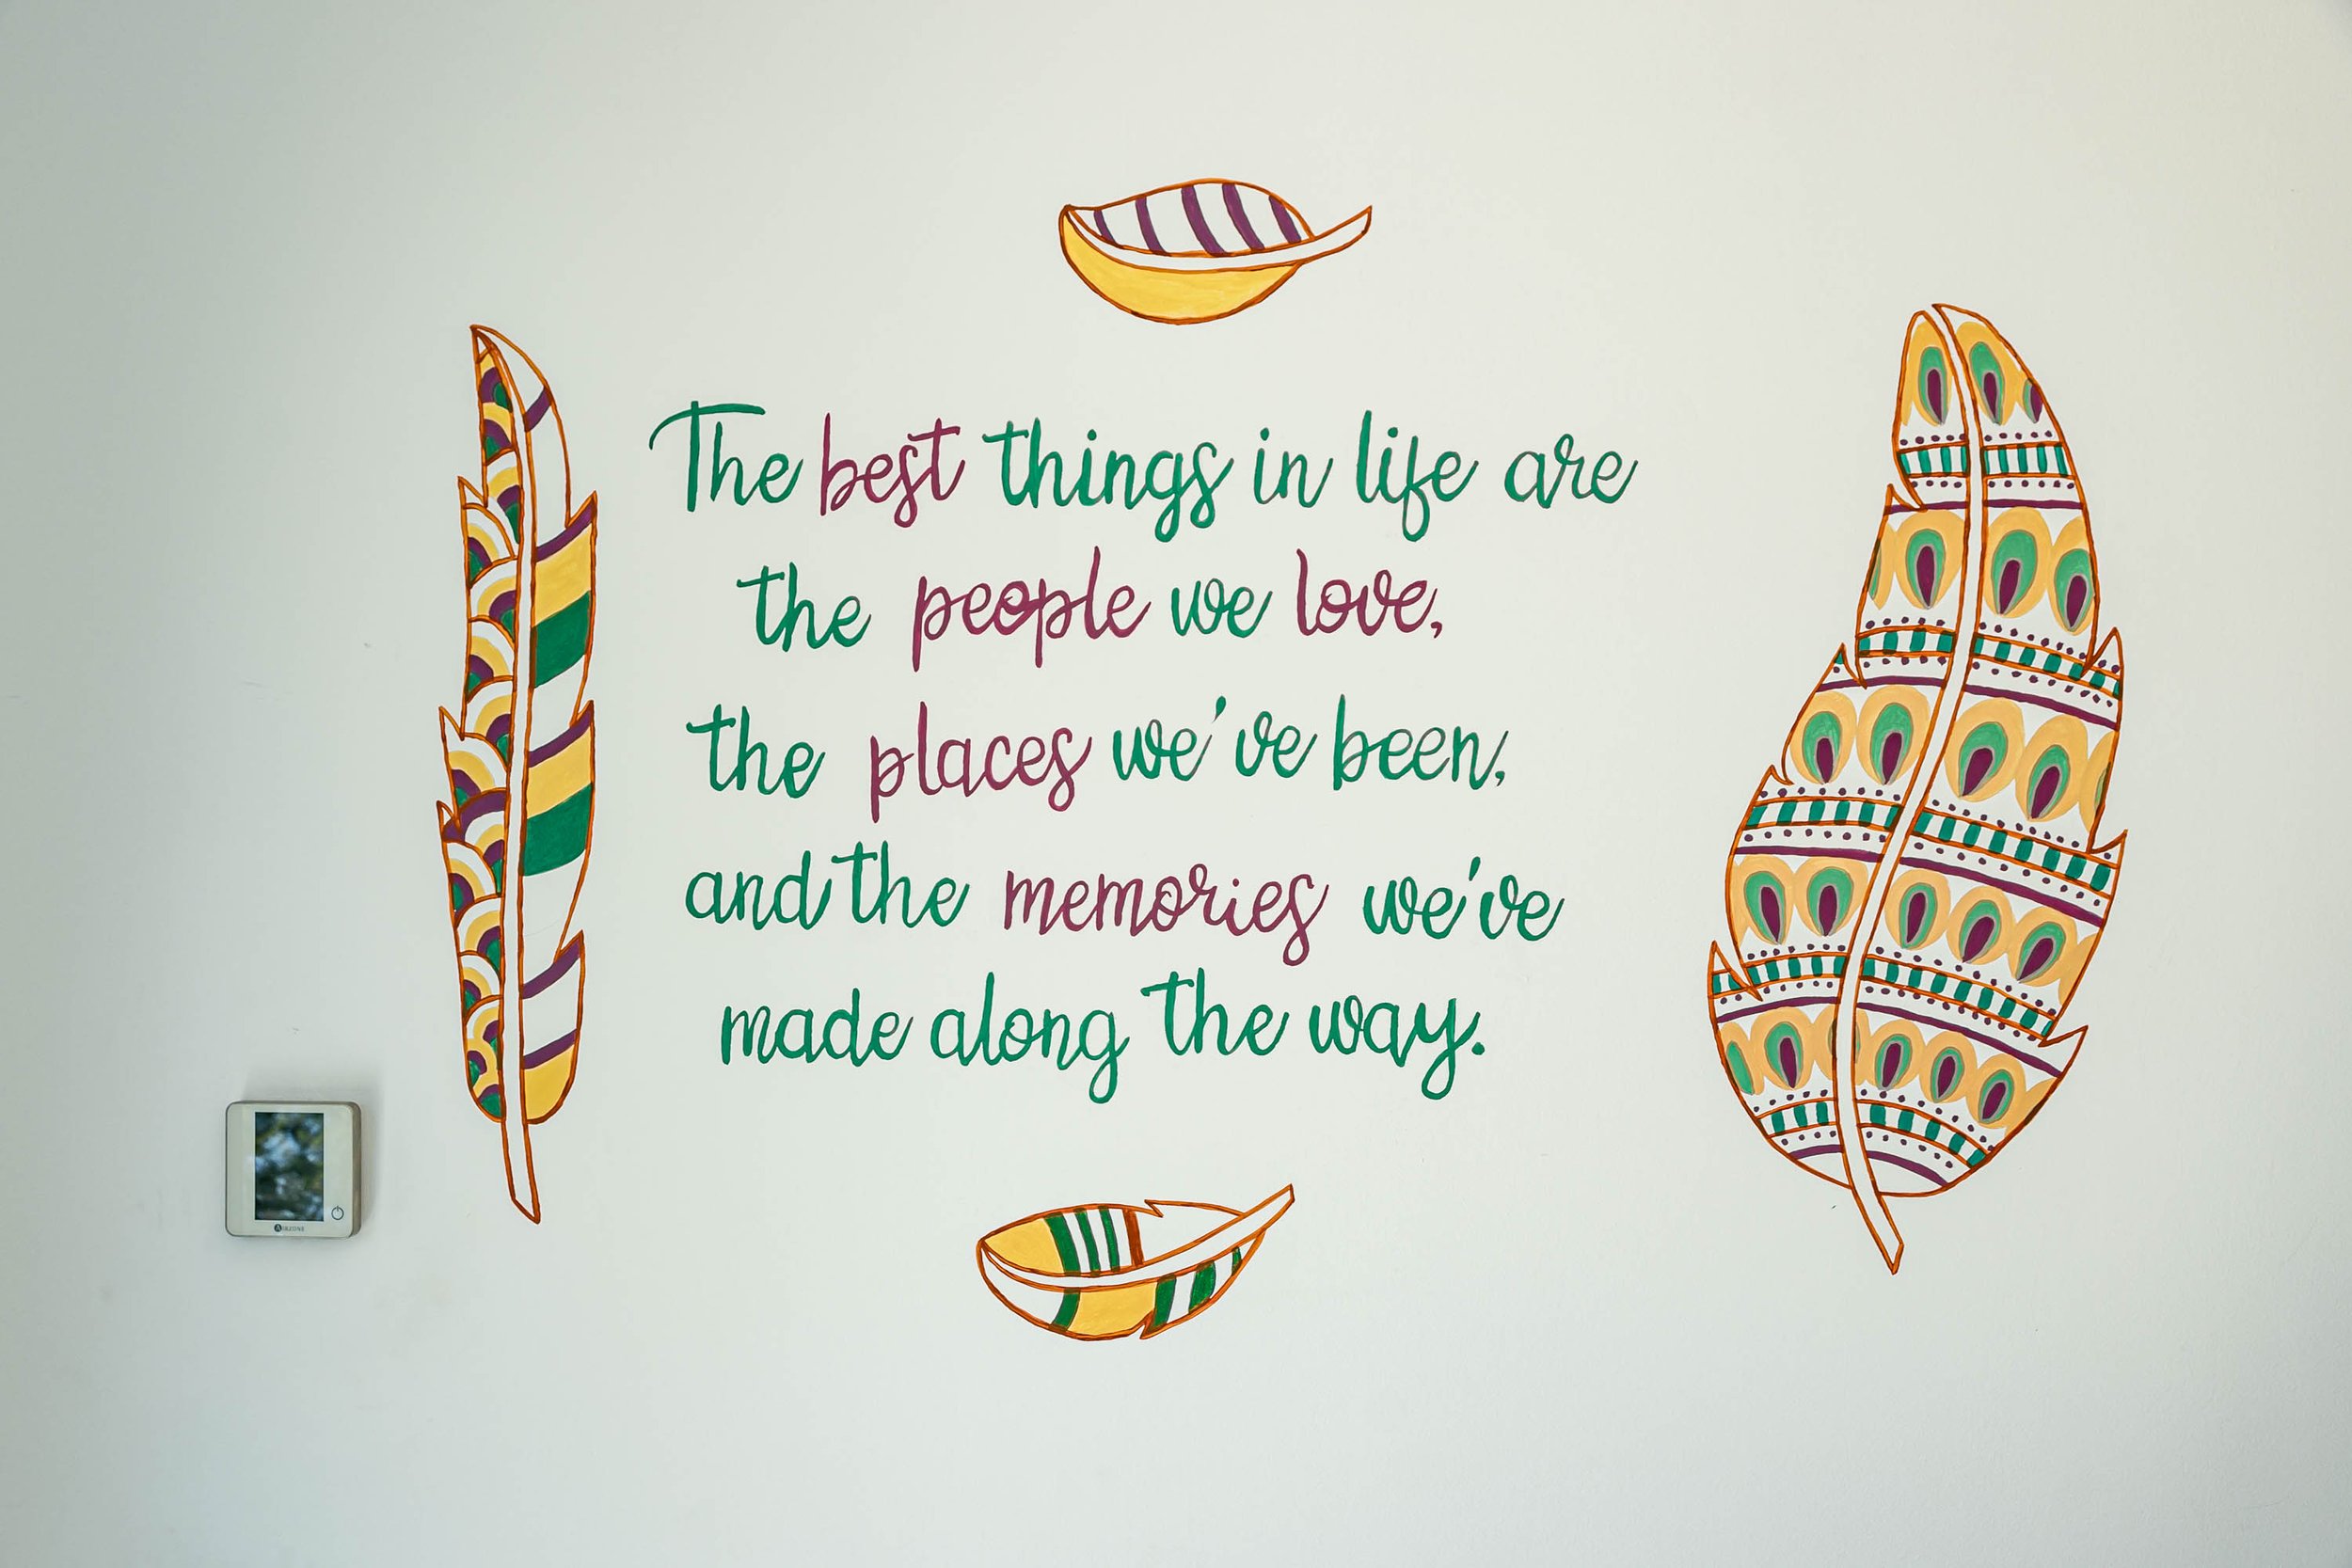 The best things in life are
the people we love,
the places we've been,
and the memories we've
made along the way.
AIRZONE